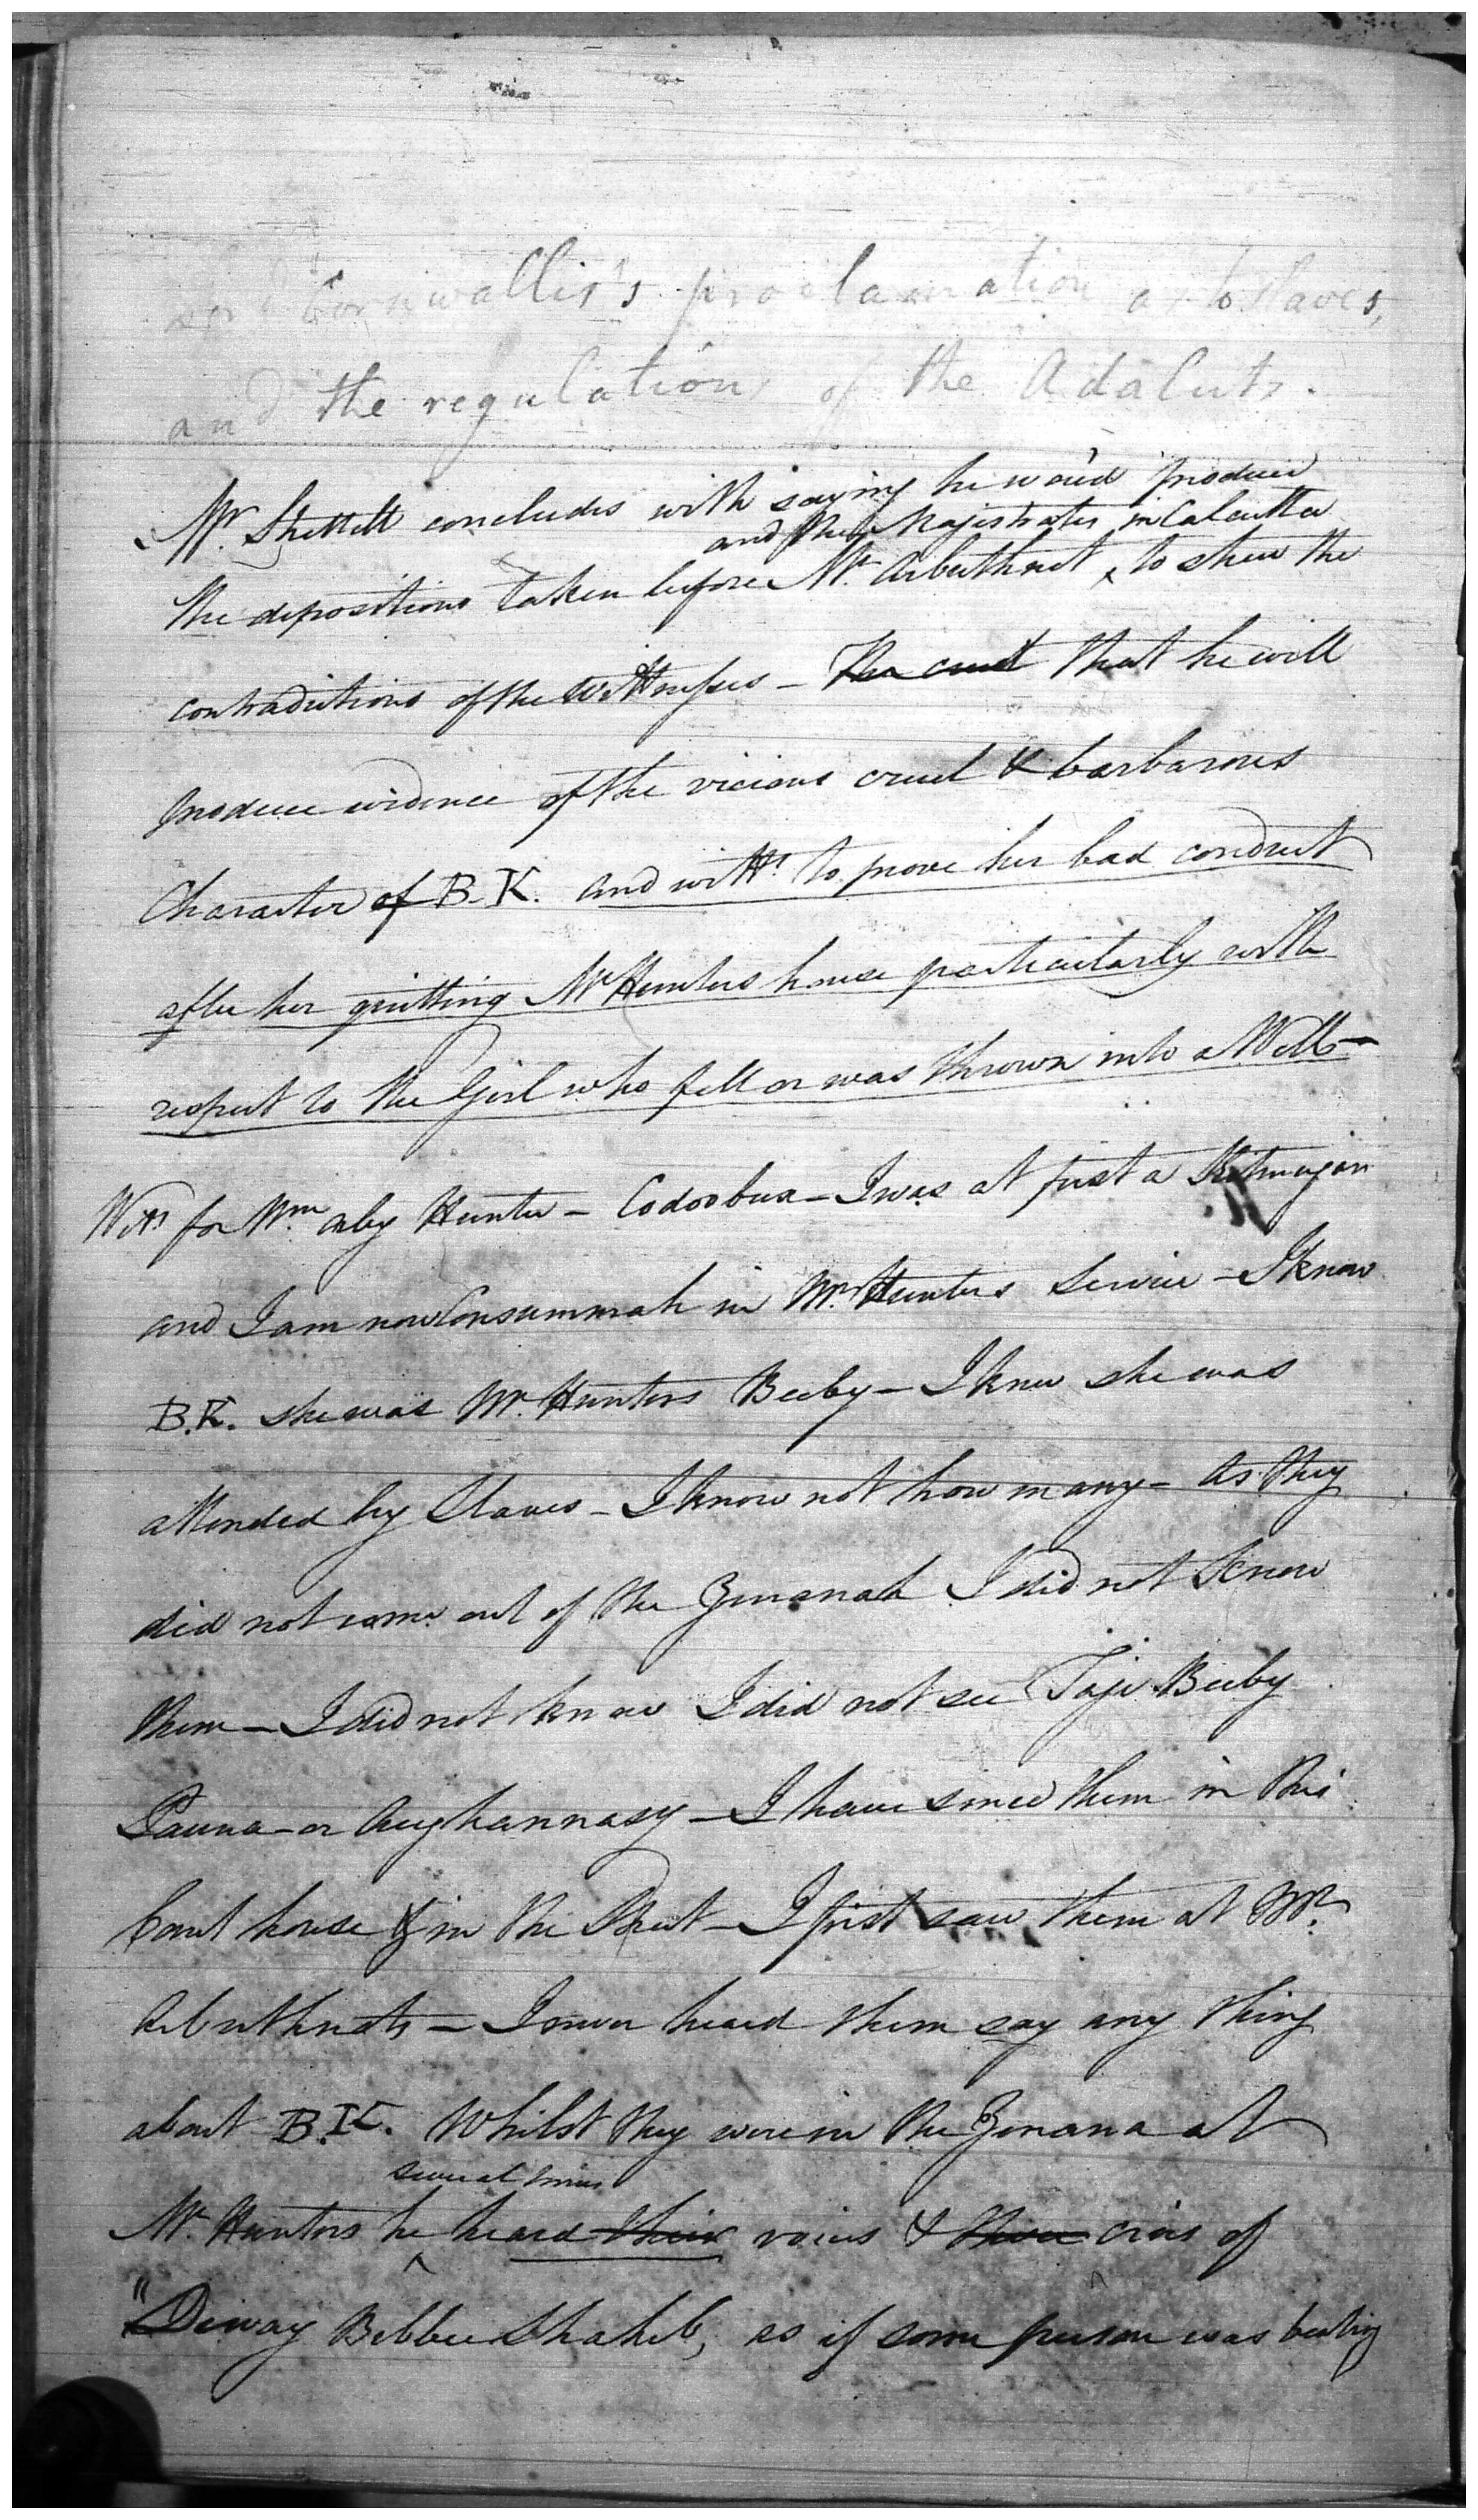 Lord Cornwallis's proclamation as to slaves,
and the regulations of the Adaluts.
Mr. Shettell concludes with saying he woud produce
and the Magistrates in Calcutta
the depositions taken before Mr. Arbuthnot ^ to shew the
contradictions of the Wittnesses - that he will
produce evidence of the vicious cruel & barbarous
Character of B. K. and witts. to prove her bad conduct
after her quitting Mr Hunters house particularly with
respect to the Girl who fell or was thrown into a Well -
Witts for Wm. Orby Hunter - Codoobux - I was at first a Kitmugar
and I am now Consummah in Mr. Hunters Service - I know
B.K. she was Mr. Hunters Beeby - I knew she was
attended by Slaves - I know not how many - As they
did not come out of the Zenanah I did not know
them - I did not know I did not see Taje Beeby
Pauna - or Aughannasy - I have since them in this
Court house & in the Street - I first saw them at Mr.
Arbuthnots - I never heard them say any thing
about B.K. Whilst they were in the Zenana at
several times
Mr. Hunters he ^ heard their voices & cries of
"Deway Bebbee Shaheb, as if some person was beating